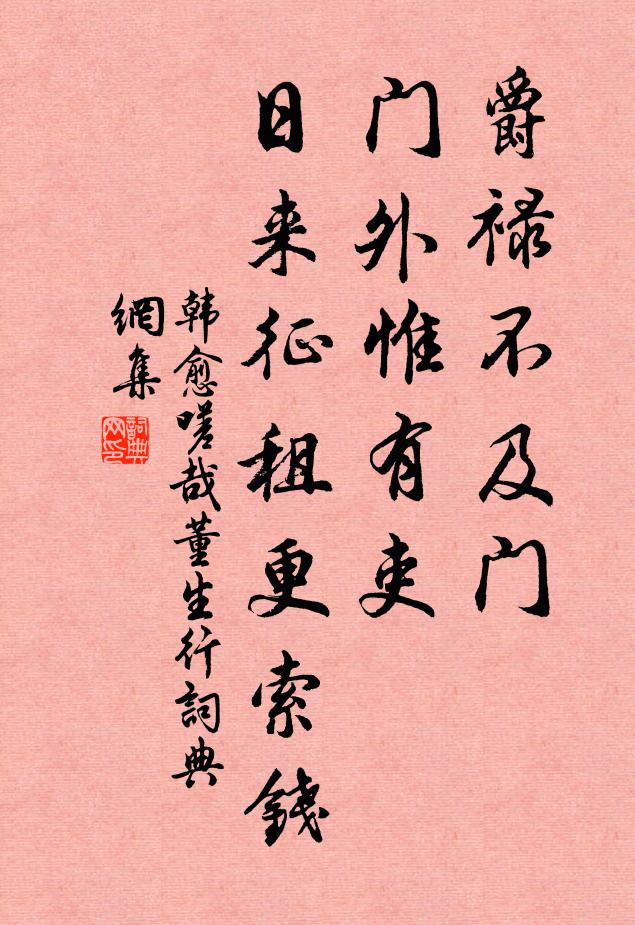 爵禄不及门
门外惟有吏
日来征租更索錢
韩愈嗟哉董生行詞典
網集
詞典
网印